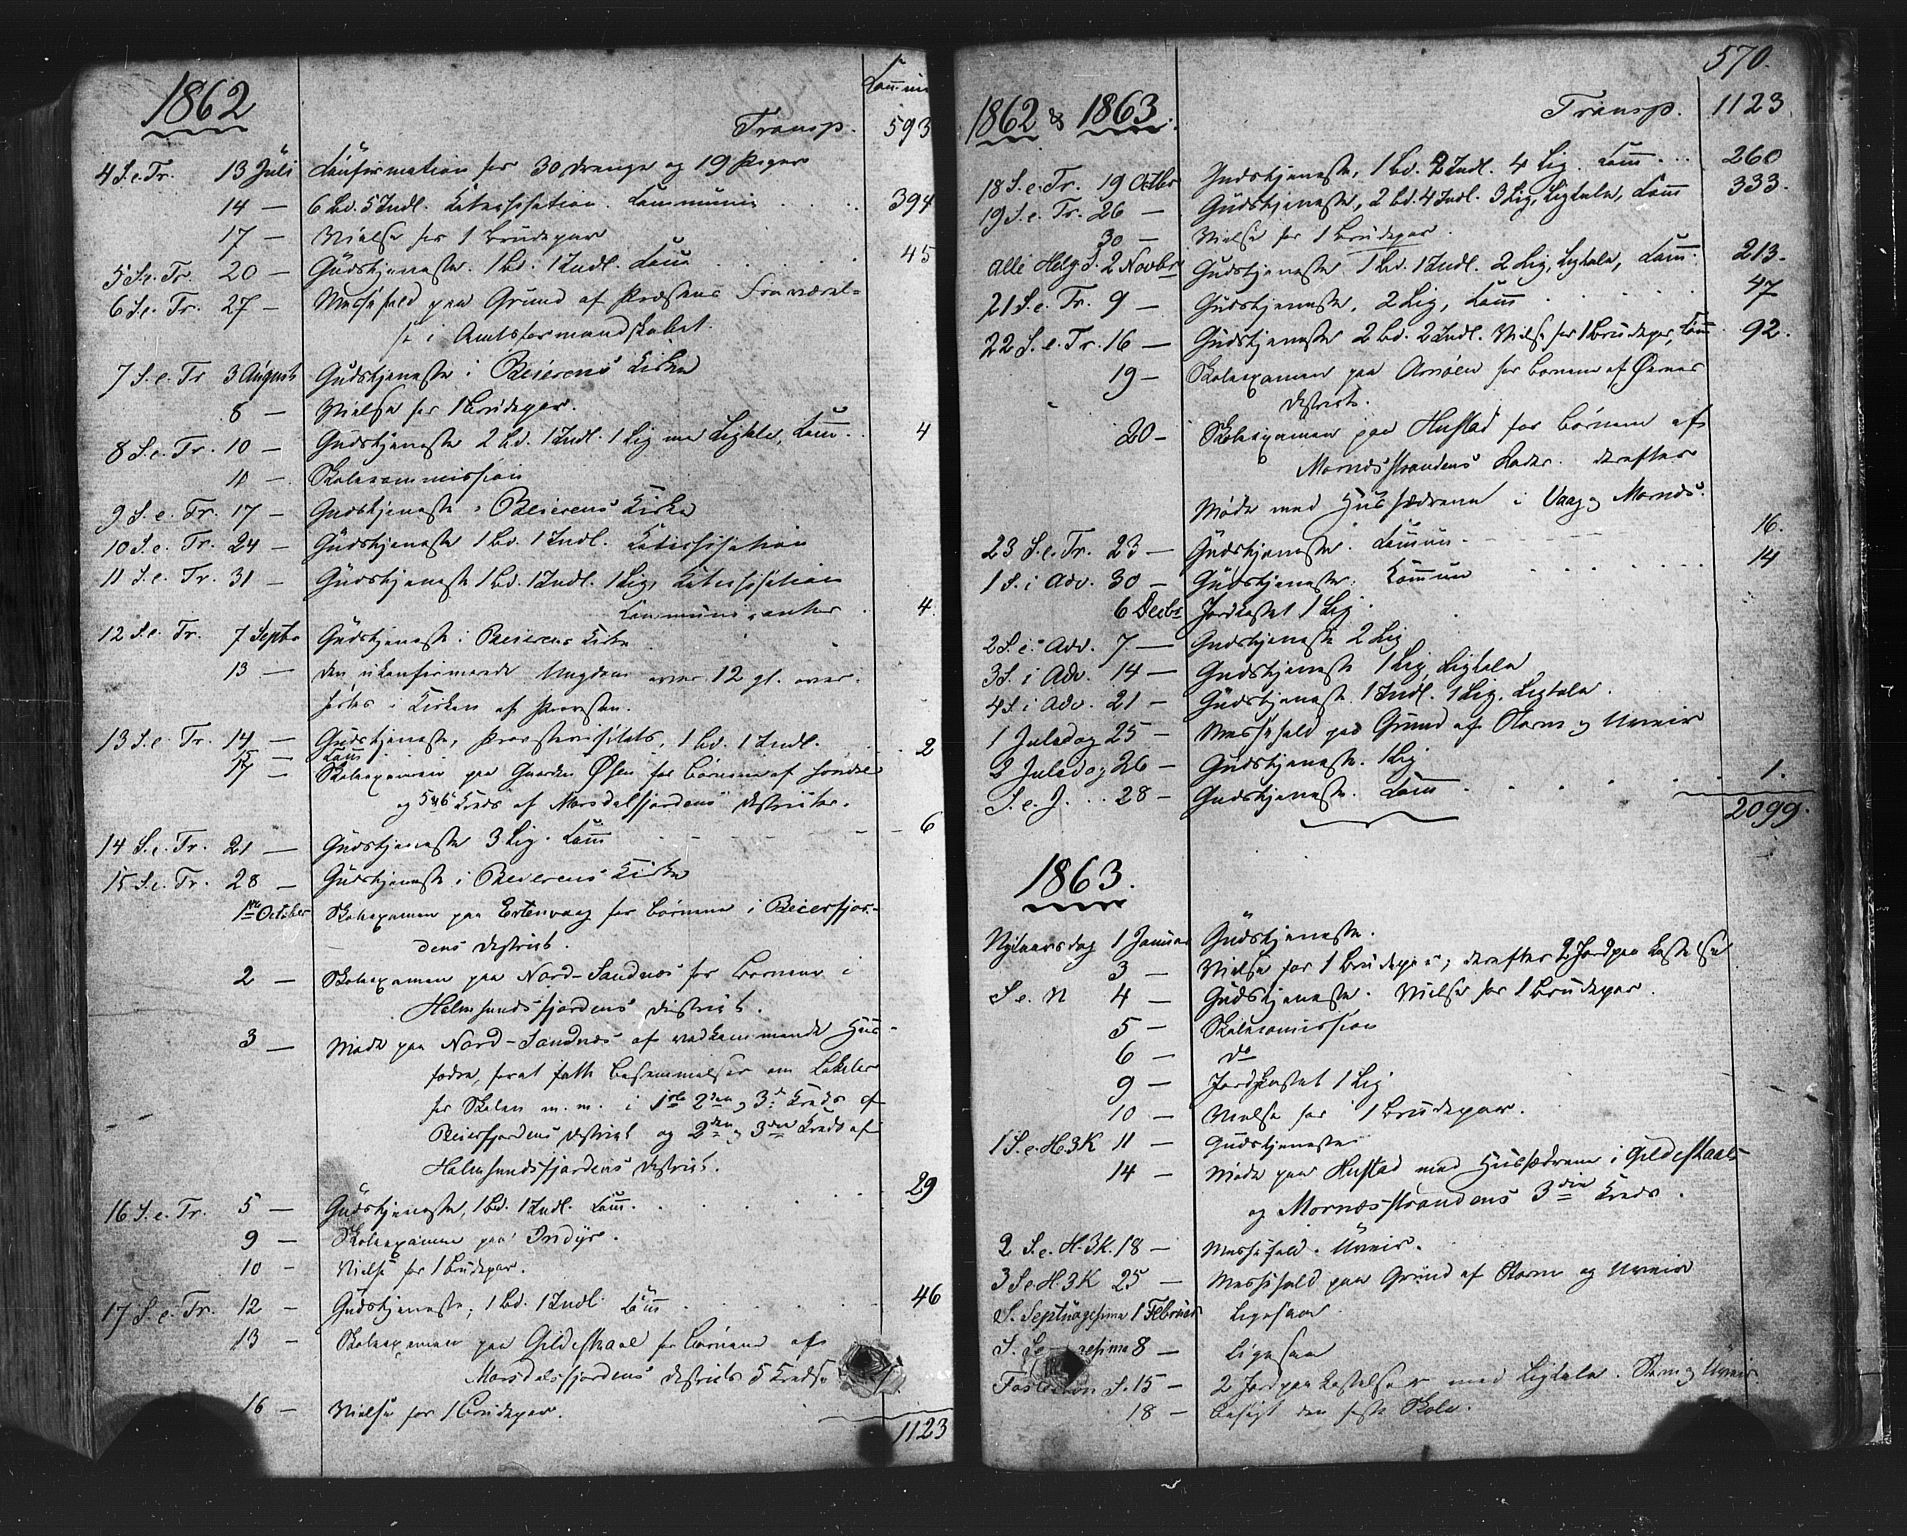 1862
Commun
Transp. 593
4 S. e. Tr. 13 Juli Confirmation for 30 Drenge og 19 Piger
14 — 6 Bd. 5 Indl. Katechisation. Communion 394
17 — Vielse for 1 Brudepar
5 S. e. Tr. 20 — Gudstjeneste. 1 Bd. 1 Indl. Comm 45
6 S. e. Tr. 27 — Messefald paa Grund af Præstens Fraværel-
se i Amtsformandskabet.
7 S. e. Tr 3 August Gudstjeneste i Beierens Kirke
8 — Vielse for 1 Brudepar.
8 S. e. Tr. 10 — Gudstjeneste 2 Bd. 1 Indl. 1 Lig med Ligtale, Comm. 4
11 — Skolecommission
9 S. e. Tr. 17 — Gudstjeneste i Beierens Kirke
10 S. e. Tr. 24 — Gudstjeneste 1 Bd. 1 Indl. Katechisation
11 S. e. Tr. 31 — Gudstjeneste 1 Bd. 1 Indl. 1 Lig, Katechisation
Communicanter 4.
12 S. e. Tr. 7 Septbr Gudstjeneste i Beierens Kirke
13 — Den ukonfirmerede Ungdom over 12 over-
hørtes i Kirken af Provsten.
13 S. e. Tr. 14 — Gudstjeneste, Provstevisitats, 1 Bd. 1 Indl. 2
Comm
17 — Skoleexamen paa Gaarden Øsen for Børnene af
og 5te 6te Kreds af Morsdalsfjordens Distrikter.
14 S. e. Tr. 21 — Gudstjeneste 3 Lig. Comm 6
15 S. e. Tr. 28 — Gudstjeneste i Beierens Kirke
1ste October Skoleexamen paa Ertenvaag for Børnene i Beierfjor-
dens Distrikt.
2 — Skoleexamen paa Nord-Sandnæs for Børnene i
Holmsundsfjordens Distrikt.
3 — Møde paa Nord-Sandnæs af vedkommende Hus-
fædre, forat fatte Bestemmelser om Lokaler
for Skolen m. m. i 1ste 2den og 3die Kreds af
Beierfjordens Distrikt og 2den og 3die Kreds af
Holmsundsfjordens Distrikt.
16 S. e. Tr. 5 — Gudstjeneste, 1 Bd. 1 Indl. Comm. 29
9 — Skoleexamen paa Indyr.
10 — Vielse for 1 Brudepar.
17 S. e. Tr. 12 — Gudstjeneste, 1 Bd. 1 Indl. Comm 46
13 — Skoleexamen paa Gildeskaal for Børnene af
Morsdalsfjordens Distrikts 5 Kredse
16 — Vielse for 1 Brudepar.
1123
570.
1862 & 1863. Transp. 1123
18 S. e. Tr. 19 Octbr Gudstjeneste, 1 Bd. 2 Indl. 4 Lig. Comm. 260
19 S. e. Tr. 26 — Gudstjeneste, 2 Bd. 4 Indl. 3 Lig, Ligtale, Comm 333.
30 — Vielse for 1 Brudepar.
Alle Helg. S. 2 Novbr Gudstjeneste 1 Bd. 1 Indl. 2 Lig, Ligtale, Comm. 213.
21 S. e. Tr. 9 — Gudstjeneste, 2 Lig, Comm 47
22 S. e. Tr. 16 — Gudstjeneste 2 Bd. 2 Indl. Vielse for 1 Brudepar, Comm 92.
19 — Skoleexamen paa Arnøen for Børnene af Ørnes
Distrikt.
20 — Skoleexamen paa Hustad for Børnene af
Mornæsstrandens Kredse. derefter
Møde med Husfædrene i Vaag og Mornæs.
23 S. e. Tr. 23 — Gudstjeneste. Commun. 16.
1 S. i Adv. 30 — Gudstjeneste. Kommun 14
6 Decbr Jordkastet 1 Lig.
2 S. i Adv. 7 — Gudstjeneste 2 Lig
3 S. i Adv. 14 — Gudstjeneste 1 Lig, Ligtale
4 S. i Adv. 21 — Gudstjeneste. 1 Indl. 1 Lig. Ligtale.
1 Juledag 25 — Messefald paa Grund af Storm og Uveir
2 Juledag 26 — Gudstjeneste. 1 Lig
S. e. J. 28 — Gudstjeneste. Comm 1.
2099.
1863.
Nytaarsdag 1 Januar Gudstjeneste.
3 — Vielse for 1 Brudepar; derefter 2 Jordpaakastelse
S. e. N 4 — Gudstjeneste. Vielse for 1 Brudepar.
5 — Skolecomission
6 — do
9 — Jordkastet 1 Lig
10 — Vielse for 1 Brudepar.
1 S. e. H. 3 K 11 — Gudstjeneste
14 — Møde paa Hustad med Husfædrene i Gildeskaals
og Mornæsstrandens 3die Kreds.
2 S. e. H. 3 K. 18 — Messefald. Uveir.
3 S e H. 3 K 25 — Messefald paa Grund af Storm og Uveir
S. Septuagesima 1 Februar Ligesaa
S. Se esima 8 — Ligesaa
Fastelavn S. 15 — 2 Jordpaakastelser med Ligtale. Storm og Uveir.
18 — Besøgt den faste Skole.